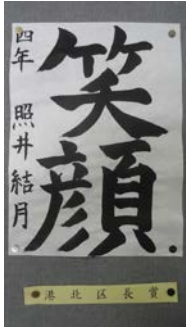 笑顔
四年 照井結月
港北区長賞